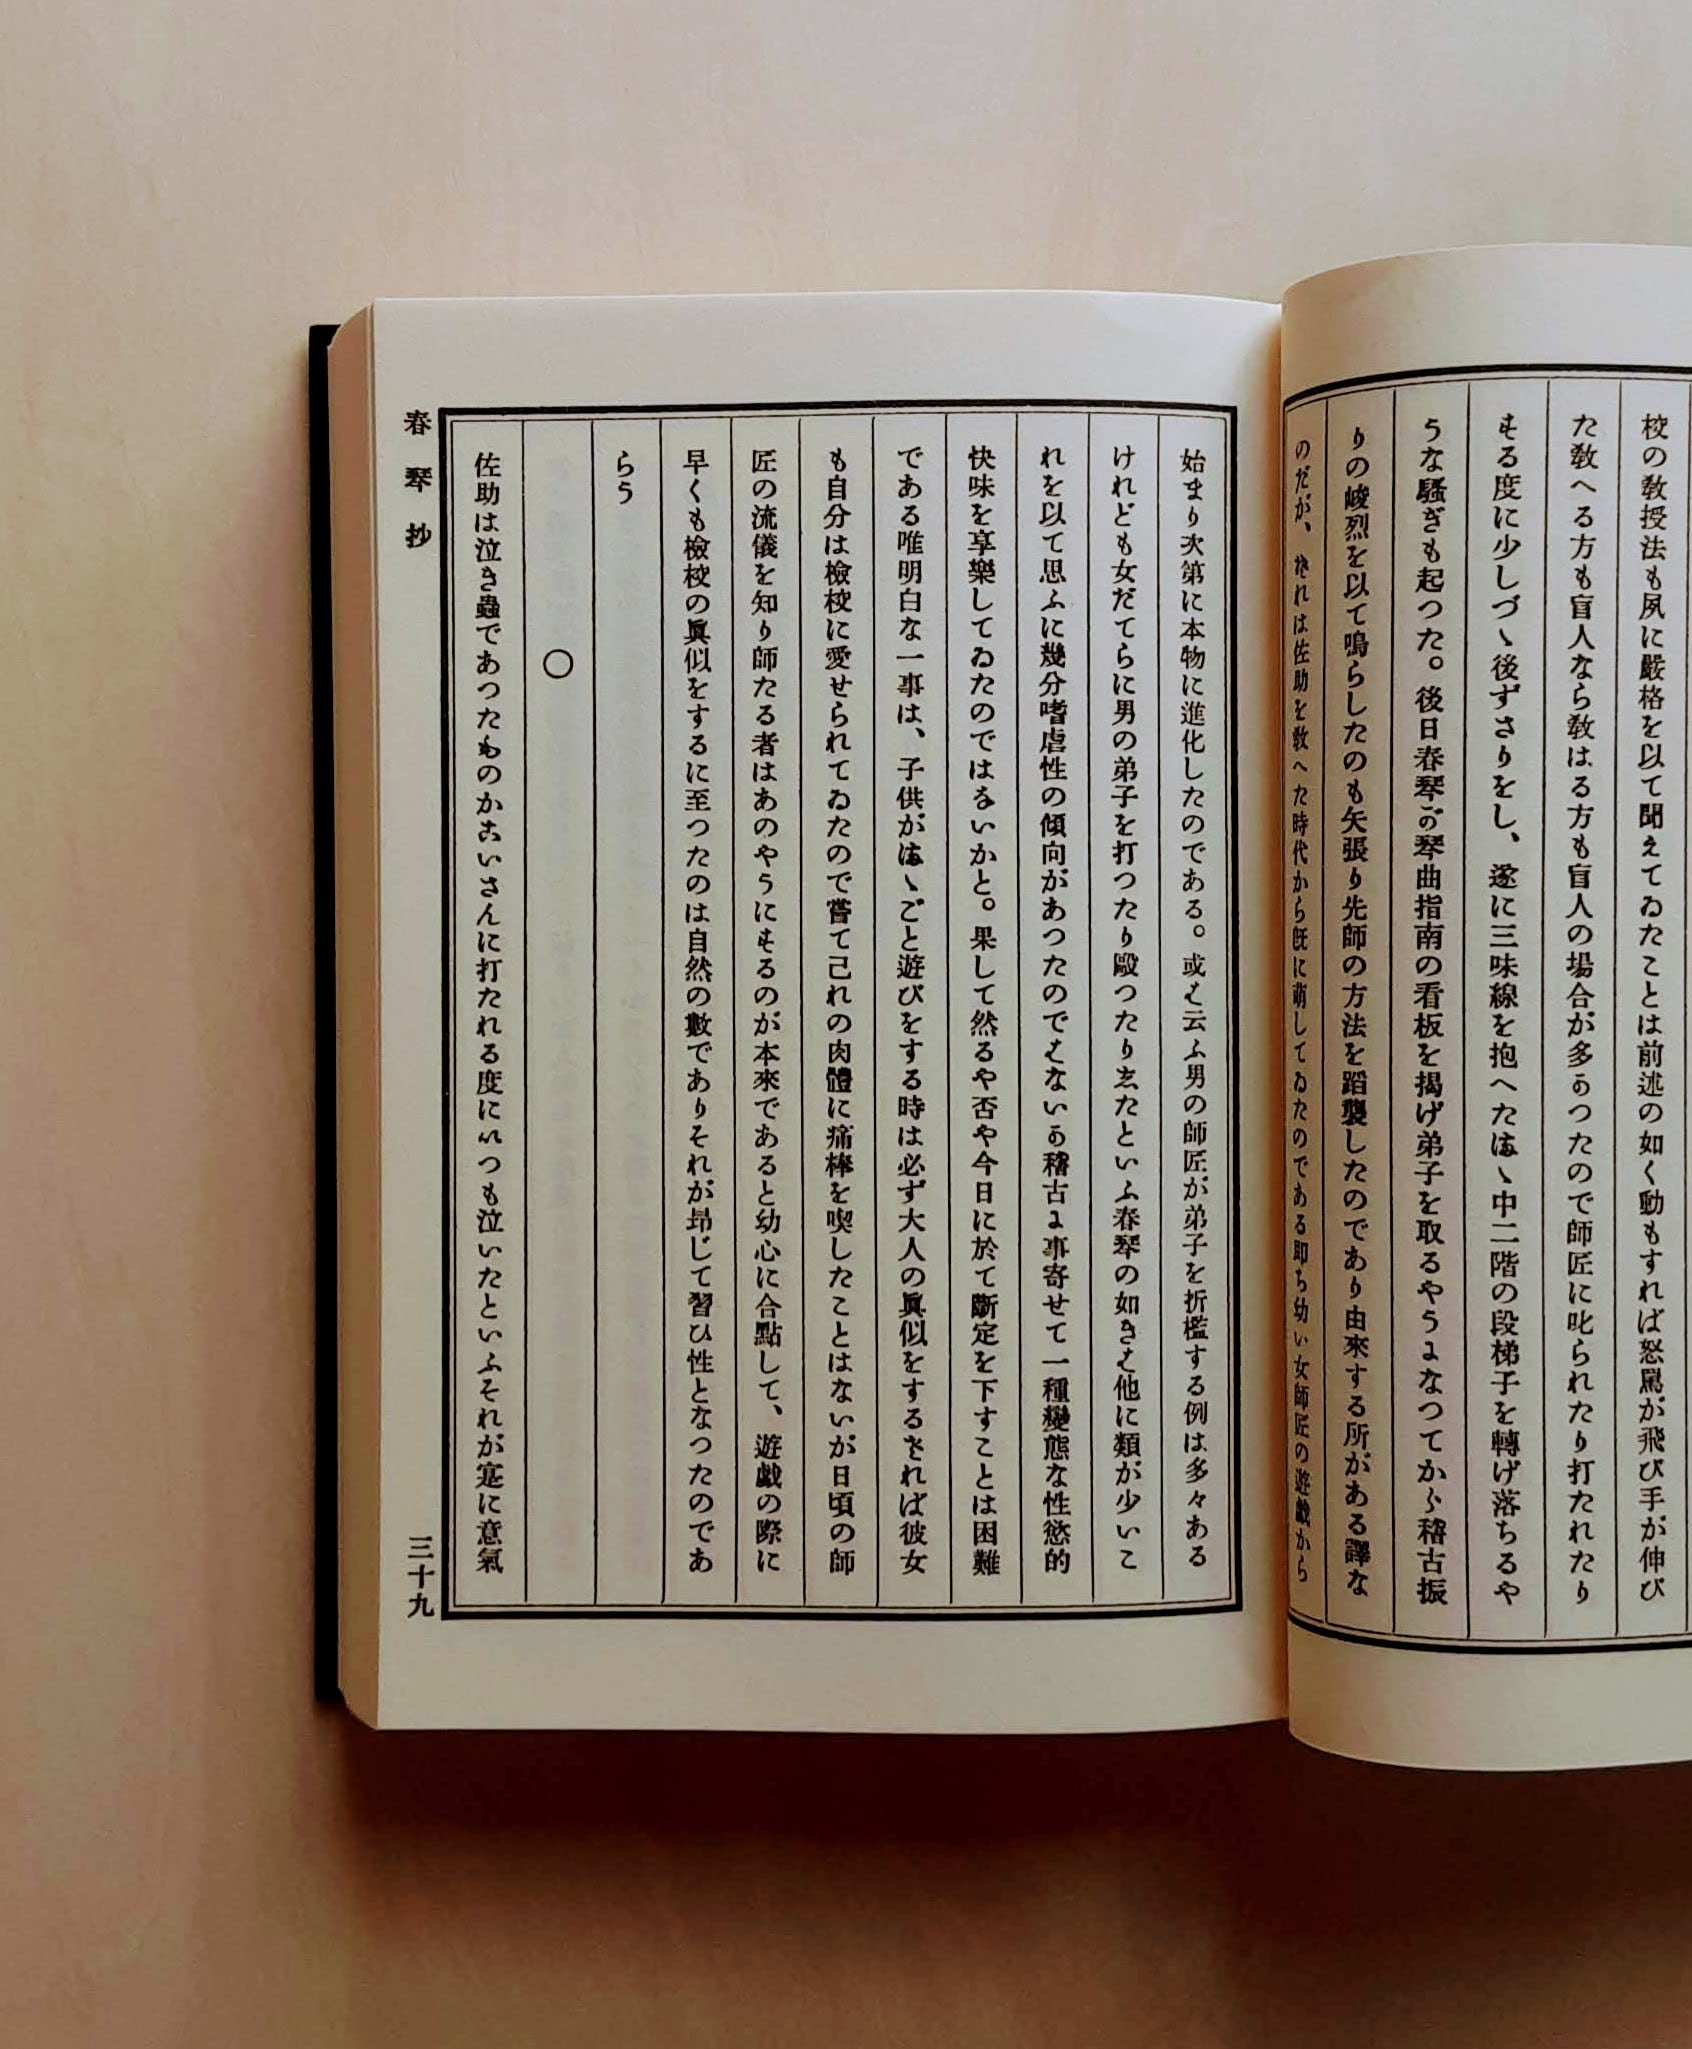 校の敎授法も夙に嚴格を以て聞えてゐたことは前述の如く動もすれば怒罵が飛び手が伸び
た敎へる方も盲人なら敎はる方も盲人の場合が多かつたので師匠に叱られたり打たれたり
する度に少しづゝ後ずさりをし、遂に三味線を抱へたまゝ中二階の段梯子を轉げ落ちるや
うな騷ぎも起つた。後日春琴が琴曲指南の看板を揭げ弟子を取るやうになつてから稽古振
りの峻烈を以て鳴らしたのも矢張り先師の方法を蹈襲したのであり由來する所がある譯な
のだが、それは佐助を敎へた時代から旣に萌してゐたのである卽ち幼い女師匠の遊戲から
始まり次第に本物に進化したのである。或は云ふ男の師匠が弟子を折檻する例は多々ある
けれども女だてらに男の弟子を打つたり毆つたりしたといふ春琴の如きは他に類が少いこ
れを以て思ふに幾分嗜虐性の傾向があつたのではないか稽古に事寄せて一種變態な性慾的
快味を享樂してゐたのではないかと。果して然るや否や今日に於て斷定を下すことは困難
である唯明白な一事は、子供がまゝごと遊びをする時は必ず大人の眞似をするされば彼女
も自分は檢校に愛せられてゐたので嘗て己れの肉體に痛棒を喫したことはないが日頃の師
匠の流儀を知り師たる者はあのやうにするのが本來であると幼心に合點して、遊戲の際に
早くも檢校の眞似をするに至つたのは自然の數でありそれが昂じて習ひ性となつたのであ
らう
〇
佐助は泣き蟲であつたものかこいさんに打たれる度にいつも泣いたといふそれが寔に意氣
春琴抄
三十九